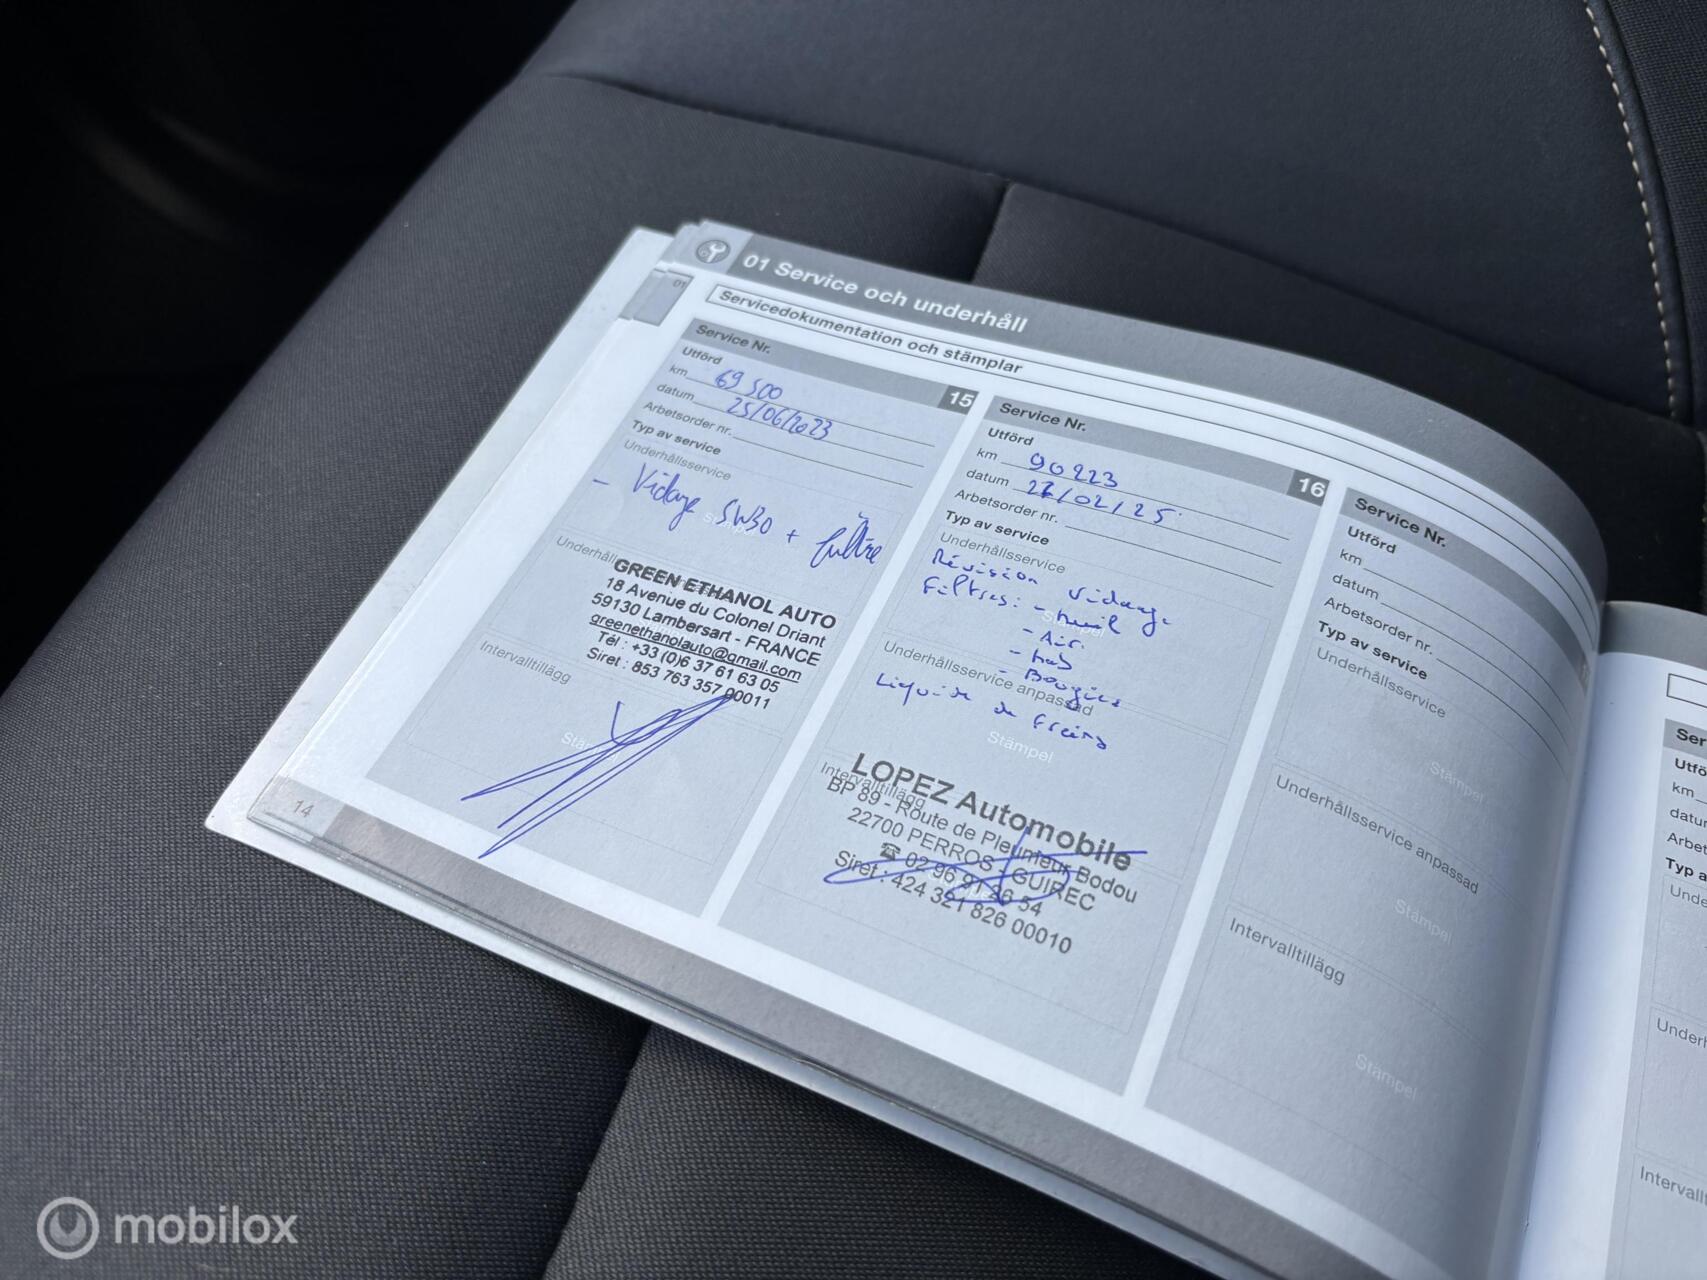 01 Service och underhåll
01
Servicedokumentation och stämplar
Service Nr.
15
Utförd
km 69 500
datum 25/06/2023
Arbetsorder nr.
Typ av service
Underhållsservice
- Vidange 5W30 + filtre
Stämpel
Underhåll
GREEN ETHANOL AUTO
18 Avenue du Colonel Driant
59130 Lambersart - FRANCE
greenethanolauto@gmail.com
Tél : +33 (0)6 37 61 63 05
Siret : 853 763 357 00011
Intervalltillägg
Stämpel
14
Service Nr.
16
Utförd
km 90 223
datum /02/25
Arbetsorder nr.
Typ av service
Underhållsservice
Révision vidange
Filtres: - huil
Stämpel
- Air.
- hab
- Bougies
Underhållsservice anpassad
Liquide de Freins
Stämpel
Intervalltillägg
LOPEZ Automobile
BP 89 - Route de Pleumeur Bodou
22700 PERROS - GUIREC
☎ 02 96 91 26 54
Siret : 424 321 826 00010
Service Nr.
Utförd
km
datum
Arbetsorder nr.
Typ av service
Underhållsservice
Stämpel
Underhållsservice anpassad
Stämpel
Intervalltillägg
Stämpel
Ser
Utfö
km
datu
Arbet
Typ a
Unde
Underh
Intervallt
mobilox